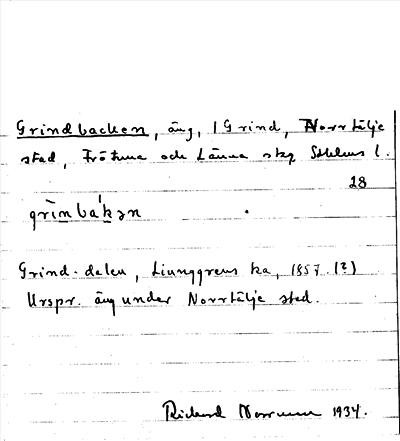 Grindbacken, äng, / Grind, Norrtälje
stad, Frötuna och Länna skg Sthlms l.
28
grìnbákən
Grind-dalen, Ljunggrens ka, 1857. (?)
Urspr. äng under Norrtälje stad.
Rickard 1934.